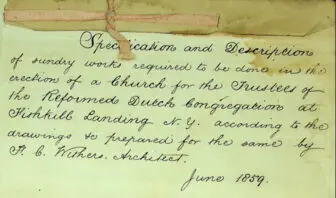 Specification and Description
of sundry works required to be done in the
erection of a Church for the Trustees of
the Reformed Dutch Congregation at
Fishkill Landing N.Y. according to the
drawings &c prepared for the same by
F. C. Withers. Architect.
June 1859.